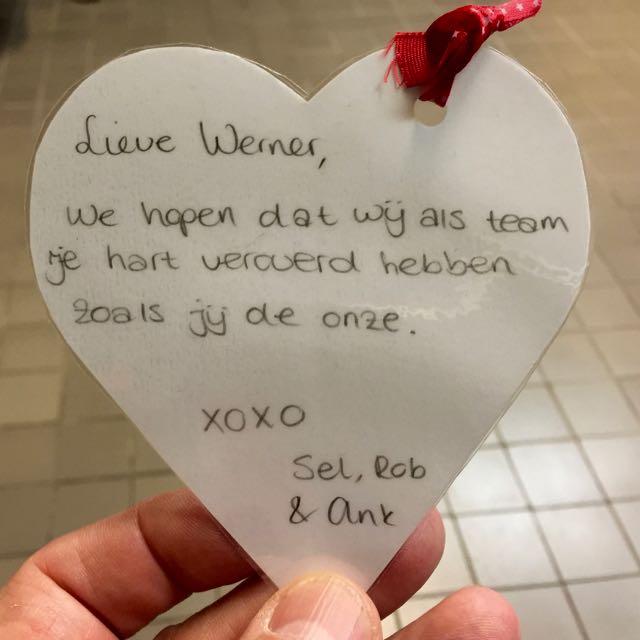 Lieve Werner,
We hopen dat wij als team
je hart veroverd hebben
zoals jij de onze.
XOXO
Sel, Rob
& Ank